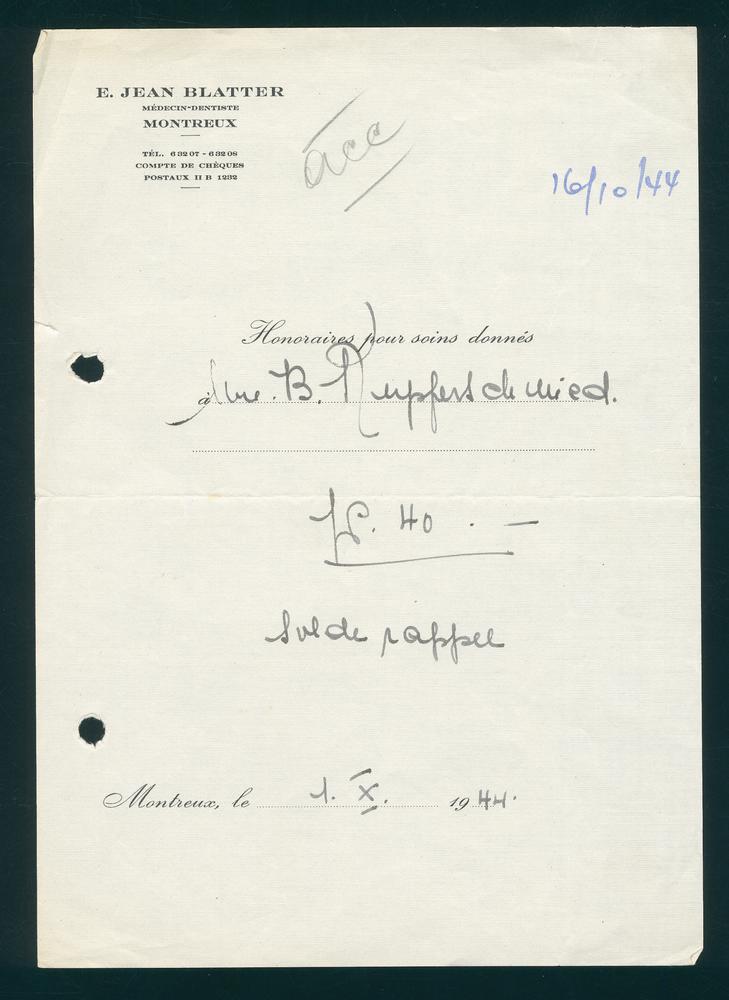 E. JEAN BLATTER
MÉDECIN-DENTISTE
MONTREUX
TÉL. 63207 - 63208
COMPTE DE CHÈQUES
POSTAUX II B 1232
acc
16/10/44
Honoraires pour soins donnés
à Mme. B.
fs. 40.—
Solde rappel
Montreux, le 1. X. 1944.